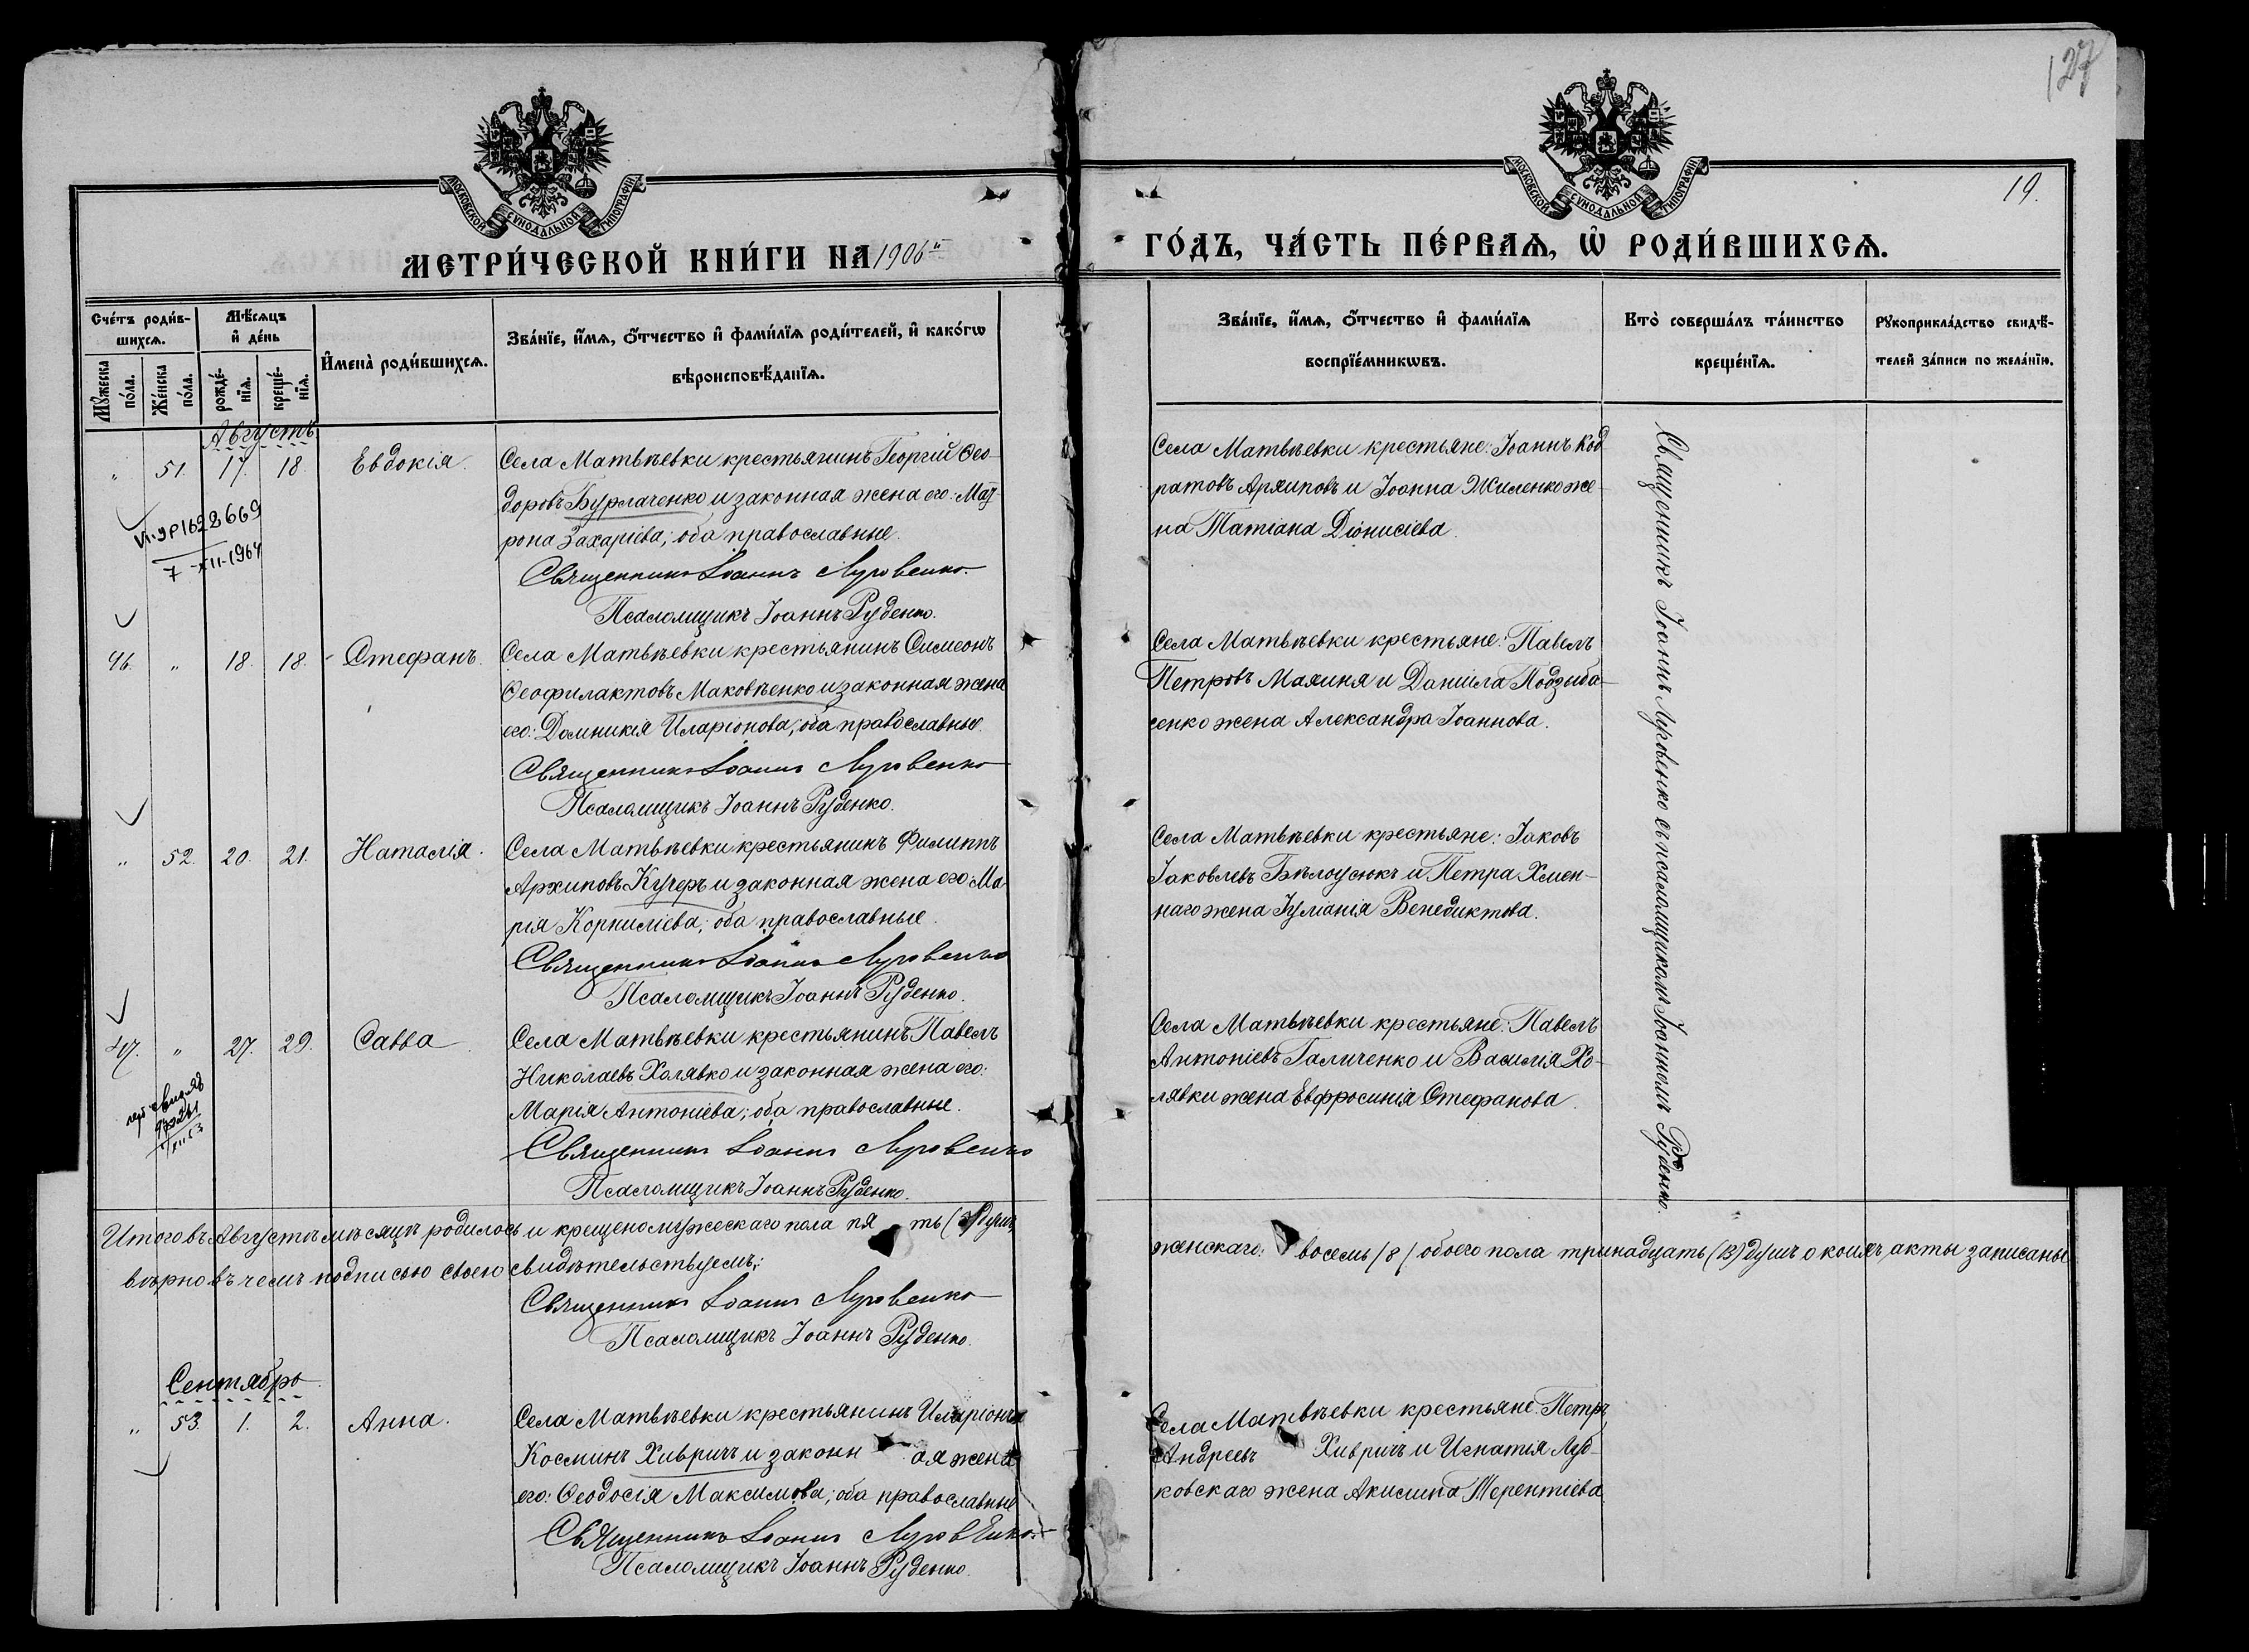 127
19.
МОСКОВСКОЙ СѴНОДАЛЬНОЙ ТИПОГРАФІИ
МОСКОВСКОЙ СѴНОДАЛЬНОЙ ТИПОГРАФІИ
МЕТРИ́ЧЕСКОЙ КНИ́ГИ НА 1906й
ГО́ДЪ, ЧА́СТЬ ПЕ́РВАѦ, Ѡ҆ РОДИ́ВШИХСѦ.
Сче́тъ роди́в-
шихсѧ.
Мѣ́сѧцъ
и҆ де́нь
Мꙋ́жеска
по́ла.
Же́нска
по́ла.
рожде́-
нїѧ.
креще́-
нїѧ.
И҆мена̀ роди́вшихсѧ.
Зва́нїе, и҆́мѧ, ѻ҆́тчество и҆ фами́лїѧ роди́телей, и҆ како́гѡ
вѣроисповѣ́данїѧ.
Зва́нїе, и҆́мѧ, ѻ҆́тчество и҆ фами́лїѧ
воспрїе́мникѡвъ.
Кто̀ соверша́лъ та́инство
креще́нїѧ.
Рꙋкоприкла́дство свидѣ́-
телей за́писи по жела́нїю.
Августъ
" 51. 17. 18. Евдокія.
Села Матвѣевки крестьянинъ Георгій Ѳео-
доровъ Бурлаченко и законная жена его: Мат-
рона Захаріева; оба православные.
Священникъ Іоаннъ Луговенко
Псаломщикъ Іоаннъ Руденко.
Села Матвѣевки крестьяне: Іоаннъ Код-
ратовъ Архиповъ и Іоанна Жиленко же-
на Татіана Діонисіева.
VI-УР 1622669
7-XII-1964
46. " 18. 18. Стефанъ.
Села Матвѣевки крестьянинъ Симеонъ
Ѳеофилактовъ Маковѣенко и законная жена
его: Домникія Иларіонова; оба православные.
Священникъ Іоаннъ Луговенко
Псаломщикъ Іоаннъ Руденко.
Села Матвѣевки крестьяне: Павелъ
Петровъ Махиня и Даніила Подзыба-
сенко жена Александра Іоаннова.
" 52. 20. 21. Наталія.
Села Матвѣевки крестьянинъ Филиппъ
Архиповъ Кучеръ и законная жена его: Ма-
рія Корниліева; оба православные.
Священникъ Іоаннъ Луговенко
Псаломщикъ Іоаннъ Руденко.
Села Матвѣевки крестьяне: Іаковъ
Іаковлевъ Бѣлоусюкъ и Петра Хмен-
наго жена Іуліанія Венедиктова.
47. " 27. 29. Савва
Села Матвѣевки крестьянинъ Павелъ
Николаевъ Холявко и законная жена его:
Марія Антоніева; оба православные.
Священникъ Іоаннъ Луговенко
Псаломщикъ Іоаннъ Руденко.
Села Матвѣевки крестьяне: Павелъ
Антоніевъ Галиченко и Василія Хо-
лявки жена Евфросинія Стефанова.
Священникъ Іоаннъ Луговенко съ псаломщикомъ Іоанномъ Руденко.
Итого въ Августѣ мѣсяцѣ родилось и крещено мужескаго пола пять (5) душъ,
женскаго: восемь /8/ обоего пола тринадцать (13) душъ о коихъ акты записаны
вѣрно въ чемъ подписью своею свидѣтельствуемъ:
Священникъ Іоаннъ Луговенко
Псаломщикъ Іоаннъ Руденко.
Сентябрь
" 53. 1. 2. Анна.
Села Матвѣевки крестьянинъ Иларіонъ
Косминъ Хивричъ и законная жена
его: Ѳеодосія Максимова; оба православные
Священникъ Іоаннъ Луговенко
Псаломщикъ Іоаннъ Руденко.
Села Матвѣевки крестьяне: Петръ
Андреевъ Хивричъ и Игнатія Луд-
ковскаго жена Акилина Терентіева.